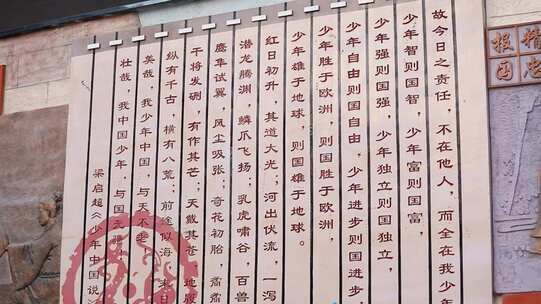 故今日之责任，不在他人，而全在我少
少年智则国智，少年富则国富，
少年强则国强，少年独立则国独立，
少年自由则国自由 少年进步则国进步，
少年胜于欧洲，则国胜于欧洲，
少年雄于地球，则国雄于地球。
红日初升，其道大光；河出伏流，一泻
潜龙腾渊，鳞爪飞扬；乳虎啸谷，百兽
鹰隼试翼，风尘吸张；奇花初胎 矞矞
干将发硎，有作其芒；天戴其苍 地履
纵有千古，横有八荒；前途似海 来日
美哉，我少年中国，与天不老
壮哉，我中国少年，与国无疆
梁启超《少年中国说
精忠
报国